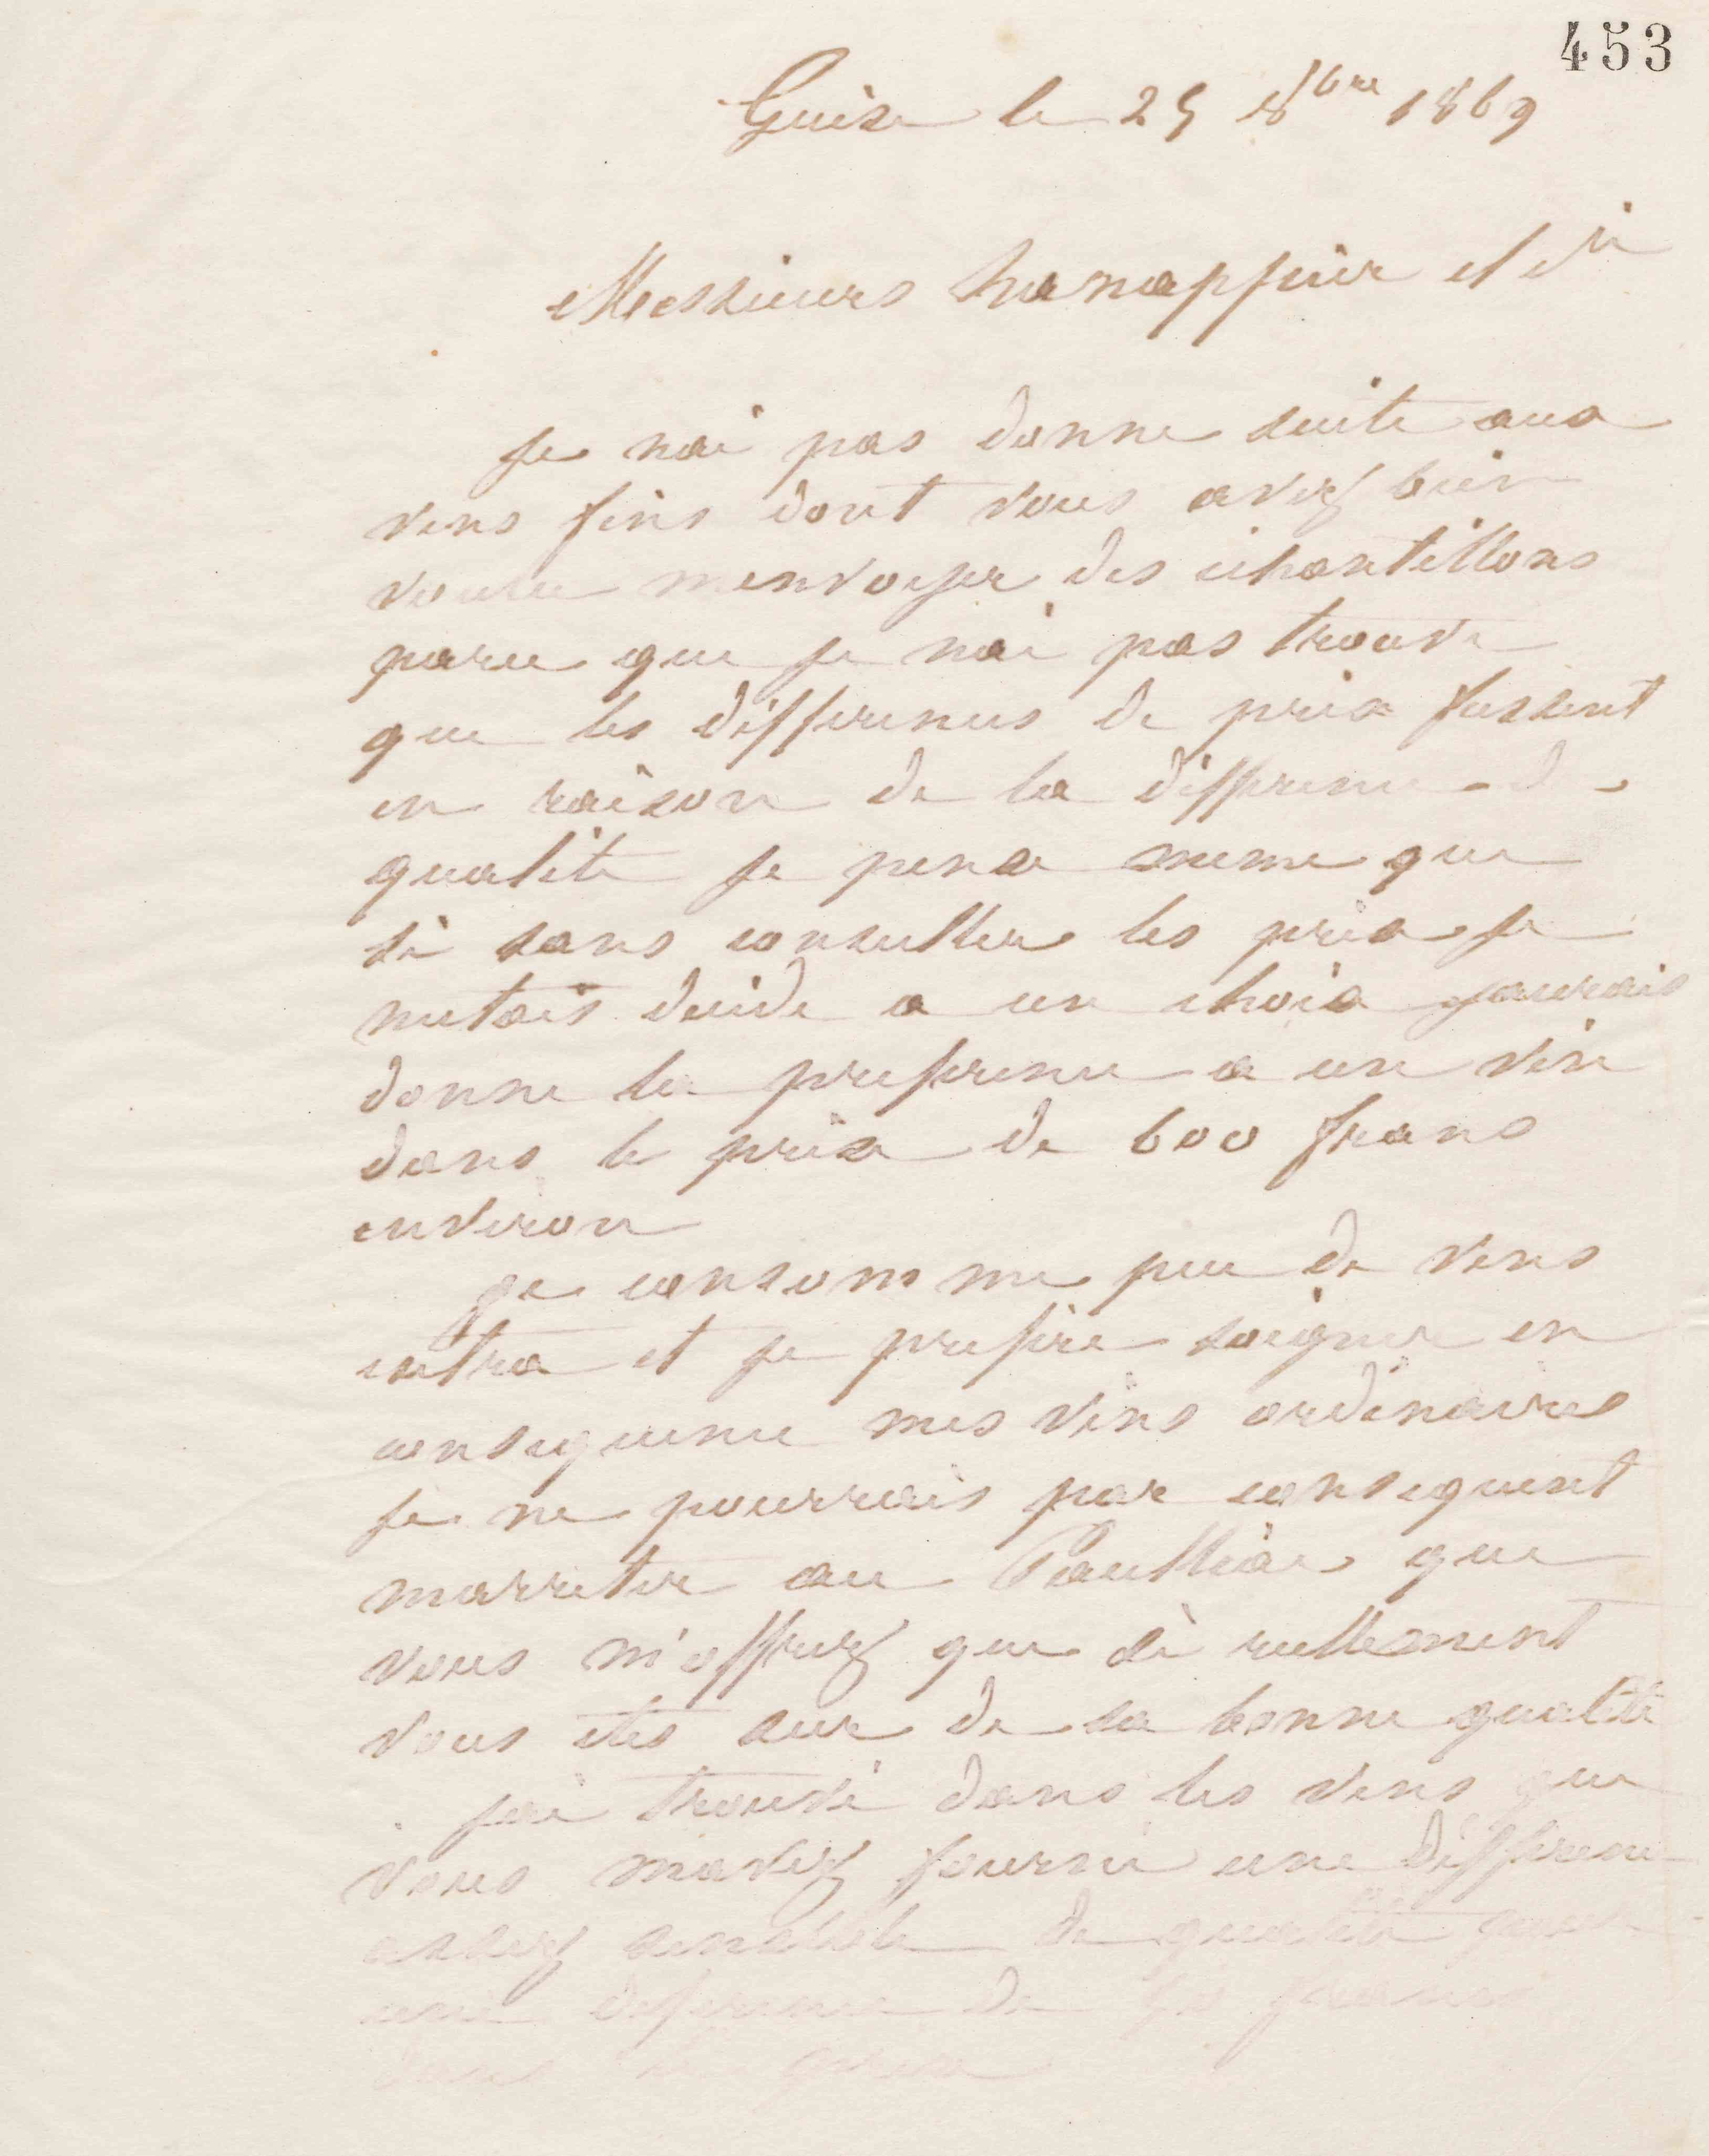 453
Guise le 25 8bre 1869
Messieurs hanappier et Cie
Je nai pas donne suite aux
vins fins dont vous avez bien
voulu menvoyer des echantillons
parce que je nai pas trouve
que les differences de prix fussent
en raison de la difference de
qualite je pense meme que
si sans consulter les prix je
metais decide a un choix jaurais
donne la preference a un vin
dans le prix de 600 francs
environ
je consomme peu de vins
extra et je prefere soigner en
consequence mes vins ordinaires
je ne pourrais par consequent
marreter au Paulliac que
vous m'offrez que si reellement
vous etes sur de sa bonne qualite
jai trouvé dans les vins que
vous mavez fourni une difference
assez sensible de qualité pour
une difference de 50 francs
dans le prix